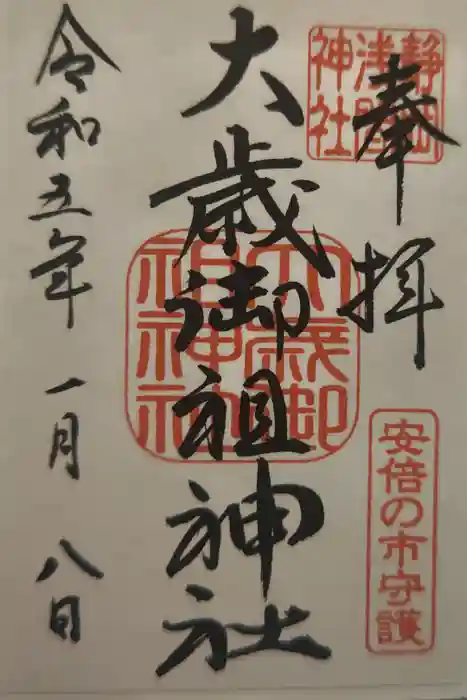 奉拝
静岡
浅間
神社
安倍の市守護
大歳御祖神社
大歳御
祖神社
令和五年一月八日